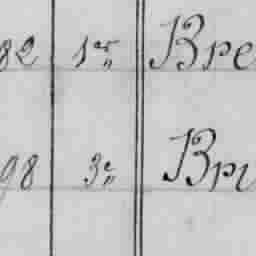 82 1er Bre
98 3e Bri